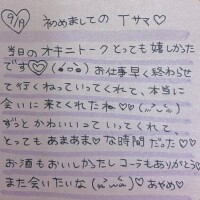 9/19 初めましての Tサマ♡
当日のオキニトークとっても嬉しかった
です♡ お仕事早く終わらせ
て行くねっていってくれて、本当に
会いに来てくれたね♡♡
ずっとかわいいっていってくれて、
とってもあまあま♡な時間だった♡♡
お酒もおいしかったし コーラもありがとう♡
また会いたいな ♡あやめ♡